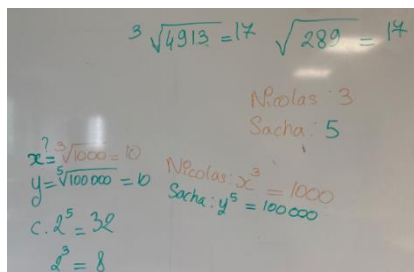 ³√4913 = 17 √289 = 17
Nicolas : 3
Sacha : 5
x?= ³√1000 = 10
y = ⁵√100000 = 10
Nicolas : x³ = 1000
Sacha : y⁵ = 100000
c. 2⁵ = 32
2³ = 8